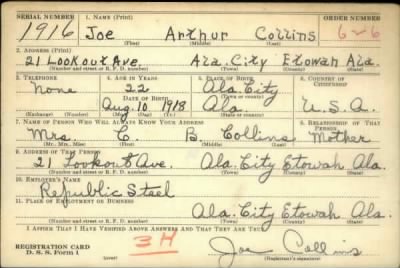 SERIAL NUMBER 1. NAME (Print) ORDER NUMBER
1916 Joe Arthur Collins 6-6
(First) (Middle) (Last)
2. ADDRESS (Print)
21 Lookout Ave. Ala. City Etowah Ala.
(Number and street or R. F. D. number) (Town) (County) (State)
3. TELEPHONE 4. AGE IN YEARS 5. PLACE OF BIRTH 6. COUNTRY OF CITIZENSHIP
None 22 Ala. City
DATE OF BIRTH (Town or county)
Aug. 10 1918 Ala. U. S. A.
(Exchange) (Number) (Mo.) (Day) (Yr.) (State or country)
7. NAME OF PERSON WHO WILL ALWAYS KNOW YOUR ADDRESS 8. RELATIONSHIP OF THAT PERSON
Mrs. C. B. Collins Mother
(Mr., Mrs., Miss) (First) (Middle) (Last)
9. ADDRESS OF THAT PERSON
21 Lookout Ave. Ala. City Etowah Ala.
(Number and street or R. F. D. number) (Town) (County) (State)
10. EMPLOYER'S NAME
Republic Steel
11. PLACE OF EMPLOYMENT OR BUSINESS
Ala. City Etowah Ala.
(Number and street or R. F. D. number) (Town) (County) (State)
I AFFIRM THAT I HAVE VERIFIED ABOVE ANSWERS AND THAT THEY ARE TRUE.
REGISTRATION CARD
D. S. S. Form 1
3H
Joe Collins
(Registrant's signature)